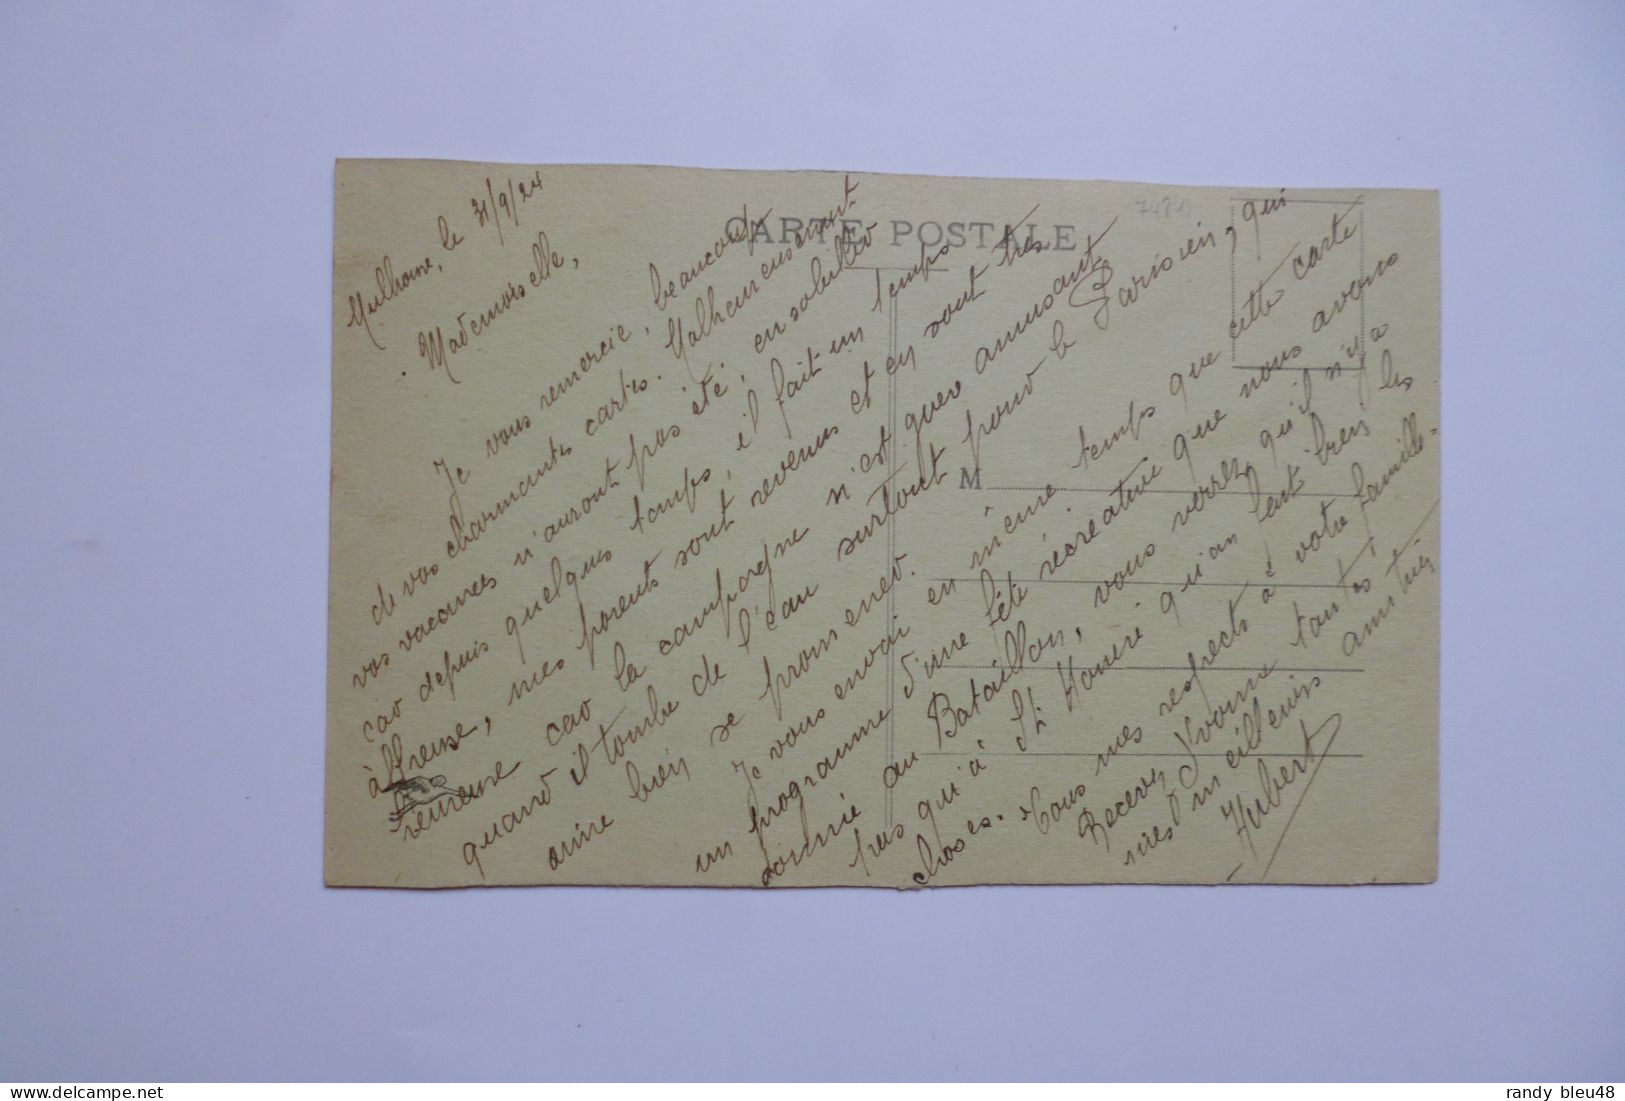 CARTE POSTALE
M
Mulhouse, le 31/9/24
Mademoiselle,
Je vous remercie, beaucoup
de vos charmantes cartes. Malheureusement
vos vacances n'auront pas été, ensoleillées
car depuis quelques temps, il fait un temps
affreuse, mes parents sont revenus et en sont très
heureuse car la campagne n'est guère amusant,
quand il tombe de l'eau surtout pour le Parisien, qui
aime bien se promener.
Je vous envoi en même temps que cette carte
un programme d'une fête récréative que nous avons
donné au Bataillon, vous verrez qu'il n'y a
pas qu'à St Honoré qu'on fait bien les
choses. Vous mes respects à votre famille.
Recevez Yvonne toutes
mes meilleurs amitiés
Hubert
randy bleu48